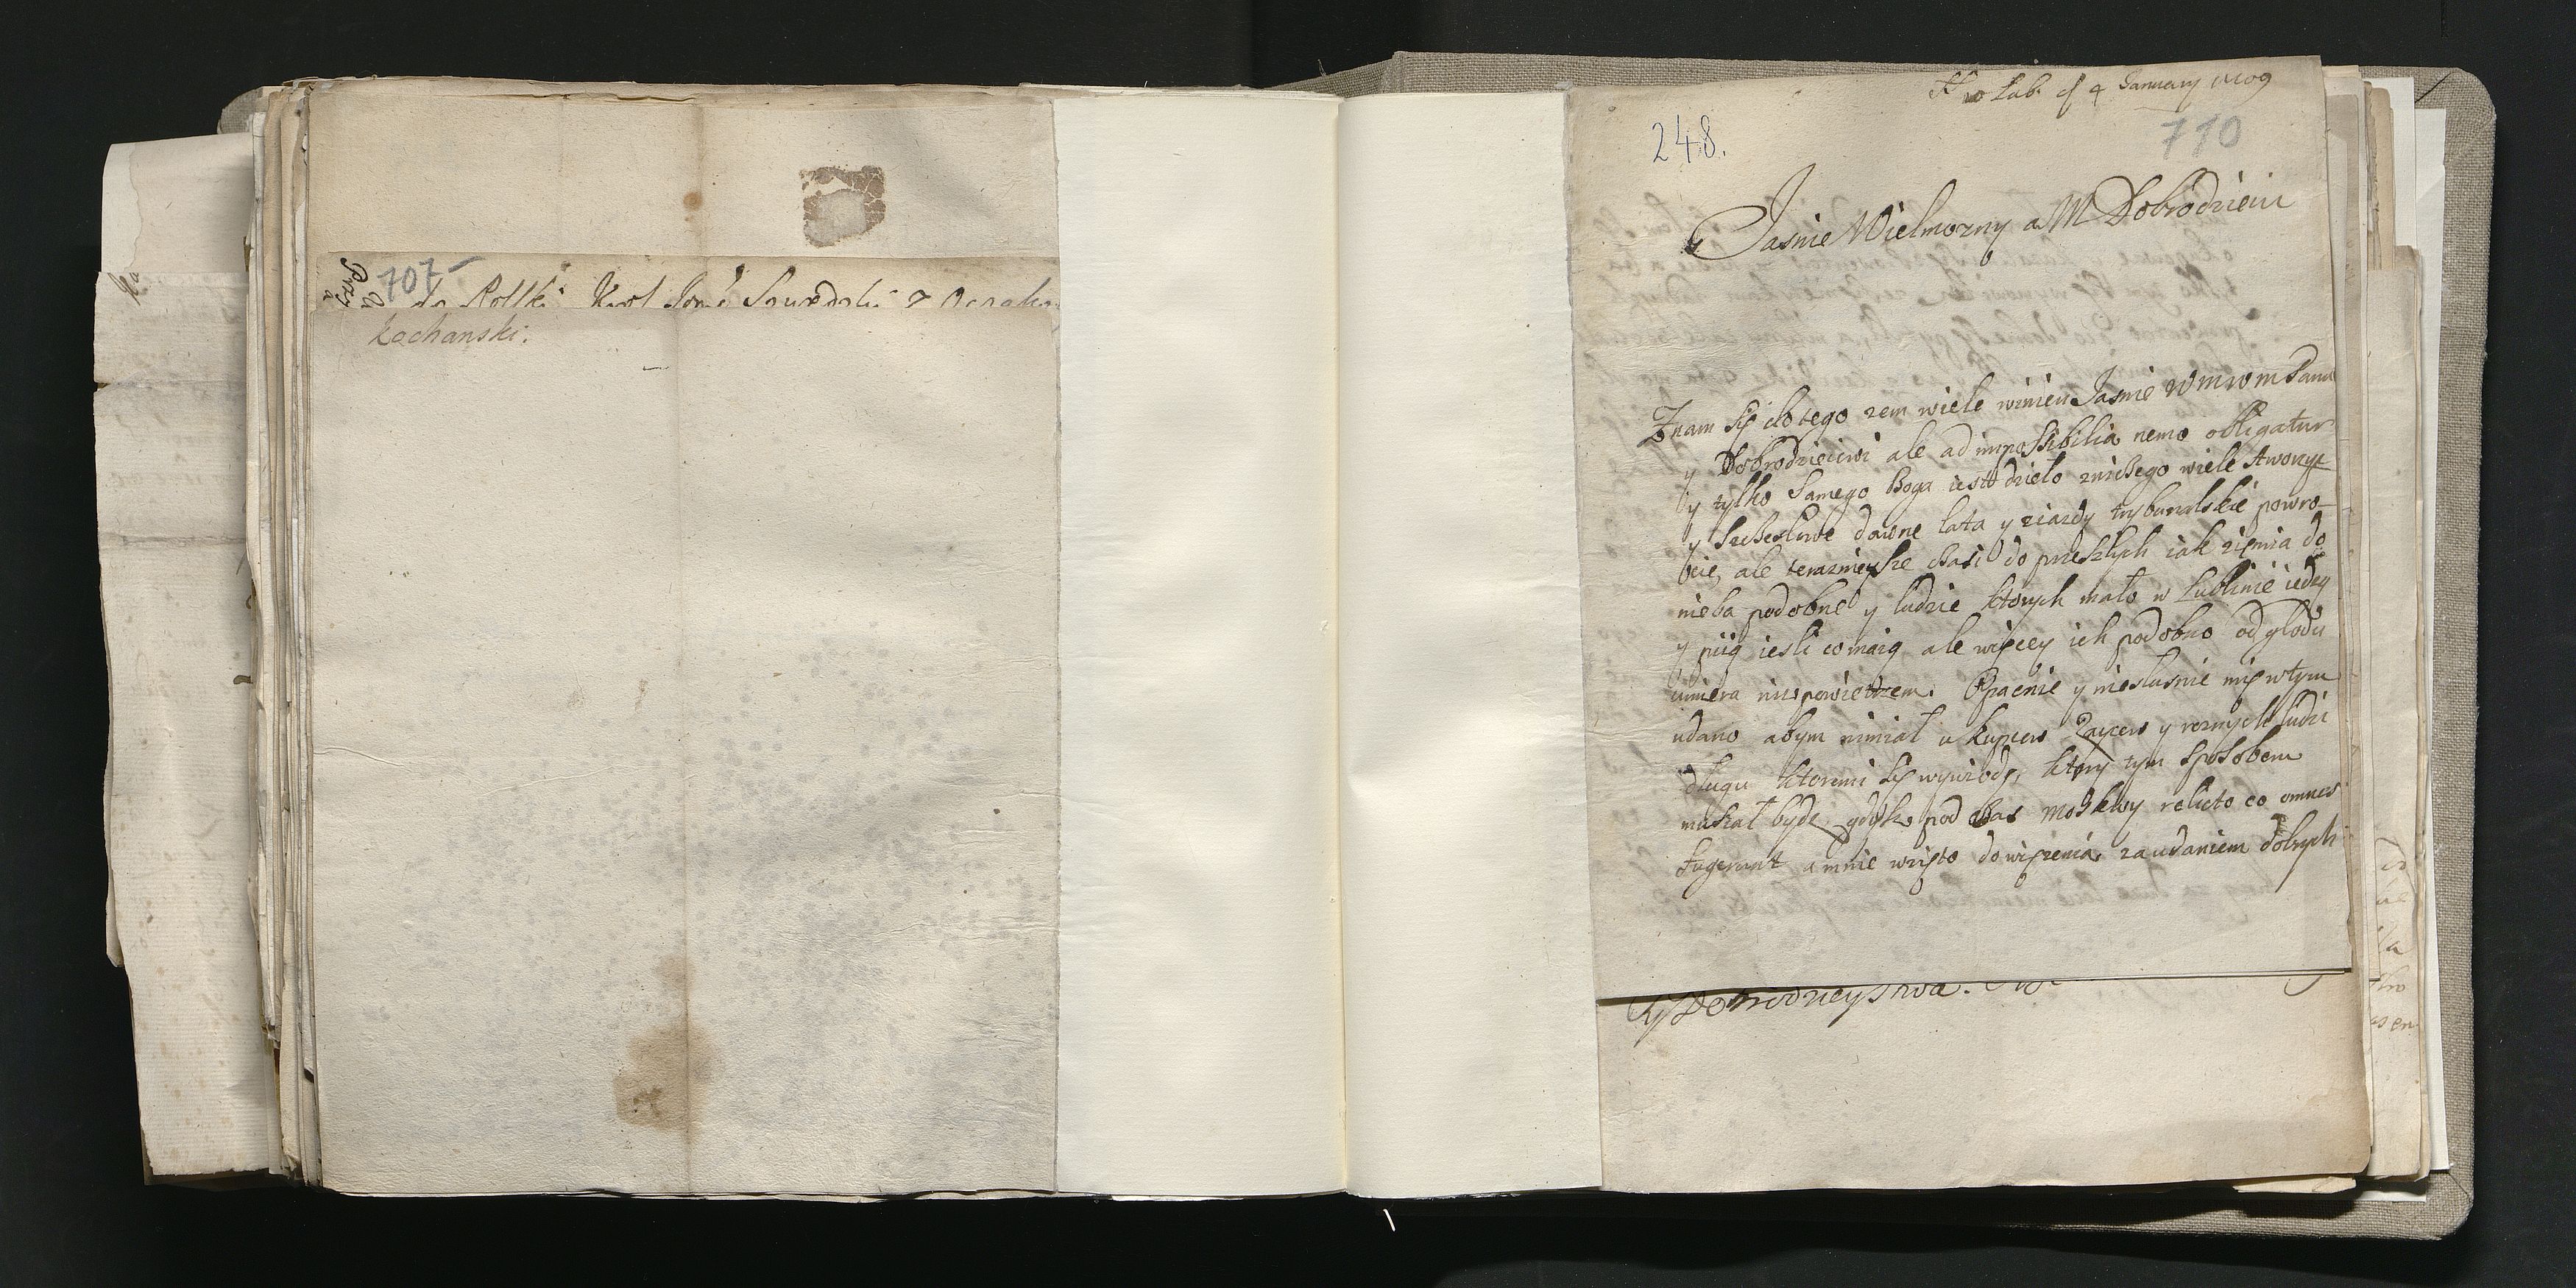 707
Kochanski.
w Lub. 4 January 1709
248.
710
Jasnie Wielmozny a M Dobrodzieiu
Znam się do tego zem wiele winien Jasnie WMWM Panu
y Dobrodzieiowi ale ad impossibilia nemo obligatur
y tylko Samego Boga iest dzieło zniczego wiele stworzyc
y Szczesliwe dawne lata y ziazdy trybunalskie powro-
cic, ale teraznieysze czasi do przeszłych iak ziemia do
nieba podobne y ludzie ktorych mało w Lublinie iedzą
y piią iesli co maią ale więcey ich podobno od głodu
umiera niz powietrzem. Opacnie y niesłusznie mię w tym
udano abym mial u kupcow y roznych ludzi
długu ktoremi się wywiodę, ktory tym sposobem
musiał byde gdysz pod czas Moskwy relicto eo omnes
fugerunt a mnie wzięto do więzenia za udaniem dobrych
y Dobrodzieystwa.